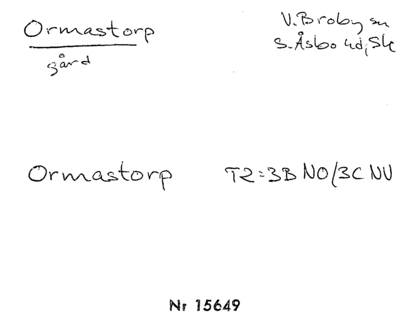 Ormastorp V. Broby sn
gård S. Åsbo hd, Sk
Ormastorp T2=3B NO/3C NV
Nr 15649